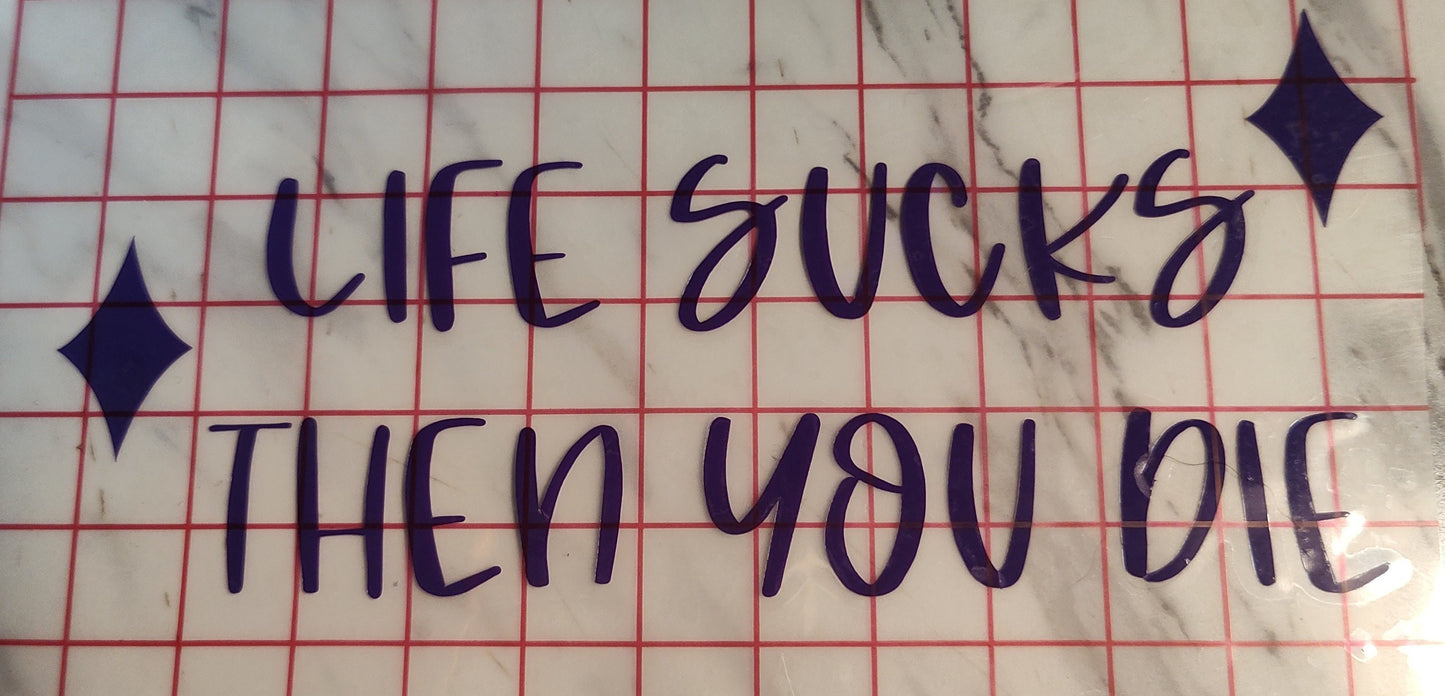 LIFE SUCKS
THEN YOU DIE